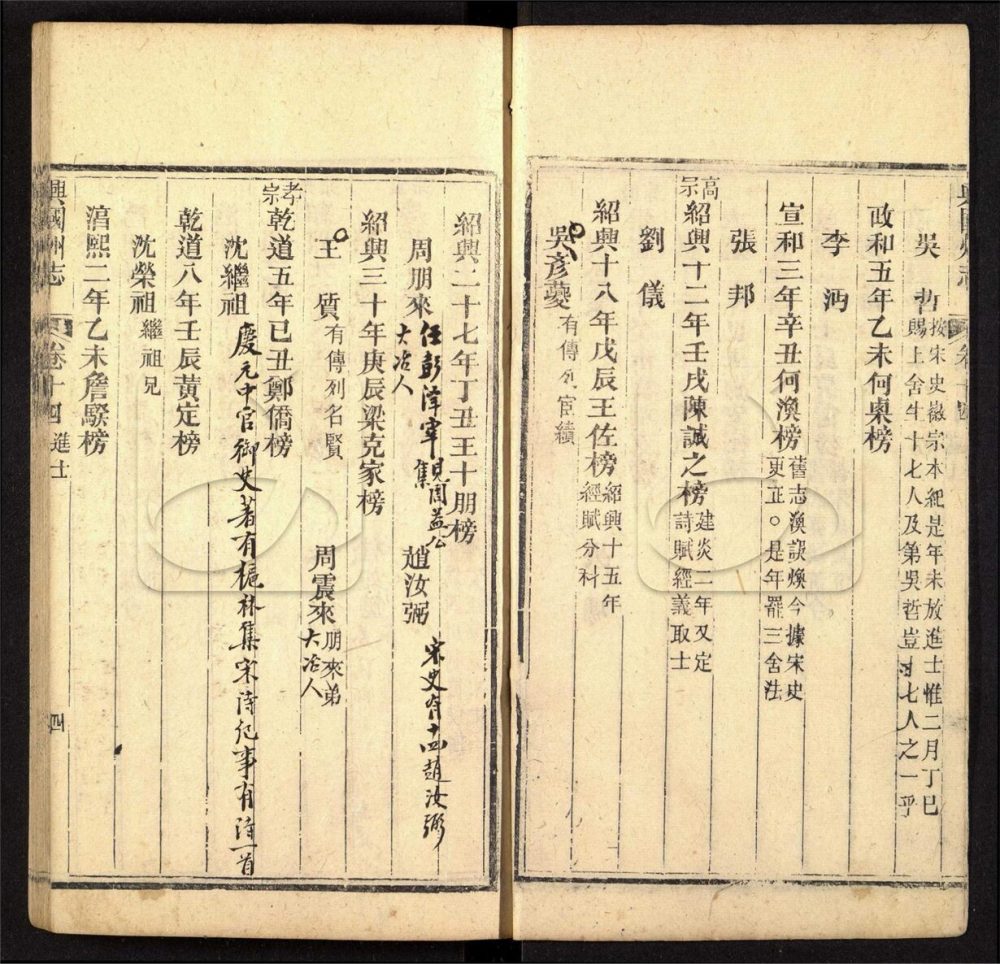 吳哲按宋史徽宗本紀是年未放進士惟二月丁巳
賜上舍生十七人及第吳哲豈十七人之一乎
政和五年乙未何㮚榜
李沔
宣和三年辛丑何渙榜舊志渙誤煥今據宋史
更正○是年罷三舍法
張邦
高宗紹興十二年壬戌陳誠之榜建炎二年又定
詩賦經義取士
劉儀
紹興十八年戊辰王佐榜紹興十五年
經賦分科
吳彥夔有傳列宦績
紹興二十七年丁丑王十朋榜
周朋來任彭澤宰見周益公
集
大冶人
趙汝弼宋史有十四趙汝弼
紹興三十年庚辰梁克家榜
王質有傳列名賢
周震來朋來弟
大冶人
孝宗乾道五年己丑鄭僑榜
沈繼祖慶元中官御史著有梔林集宋詩紀事有詩一首
乾道八年壬辰黃定榜
沈榮祖繼祖兄
淳熙二年乙未詹騤榜
興國州志 卷十四 進士 四